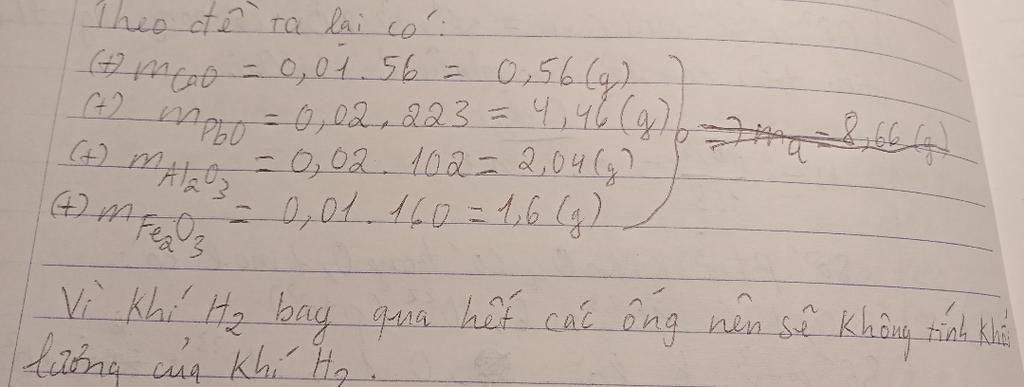 Theo đề ta lại có:
(+) mCaO = 0,01 . 56 = 0,56 (g)
(+) mPbO = 0,02 . 223 = 4,46 (g) => ma = 8,66 (g)
(+) mAl2O3 = 0,02 . 102 = 2,04 (g)
(+) mFe2O3 = 0,01 . 160 = 1,6 (g)
Vì khí H2 bay qua hết các ống nên sẽ không tính khối
lượng của khí H2.